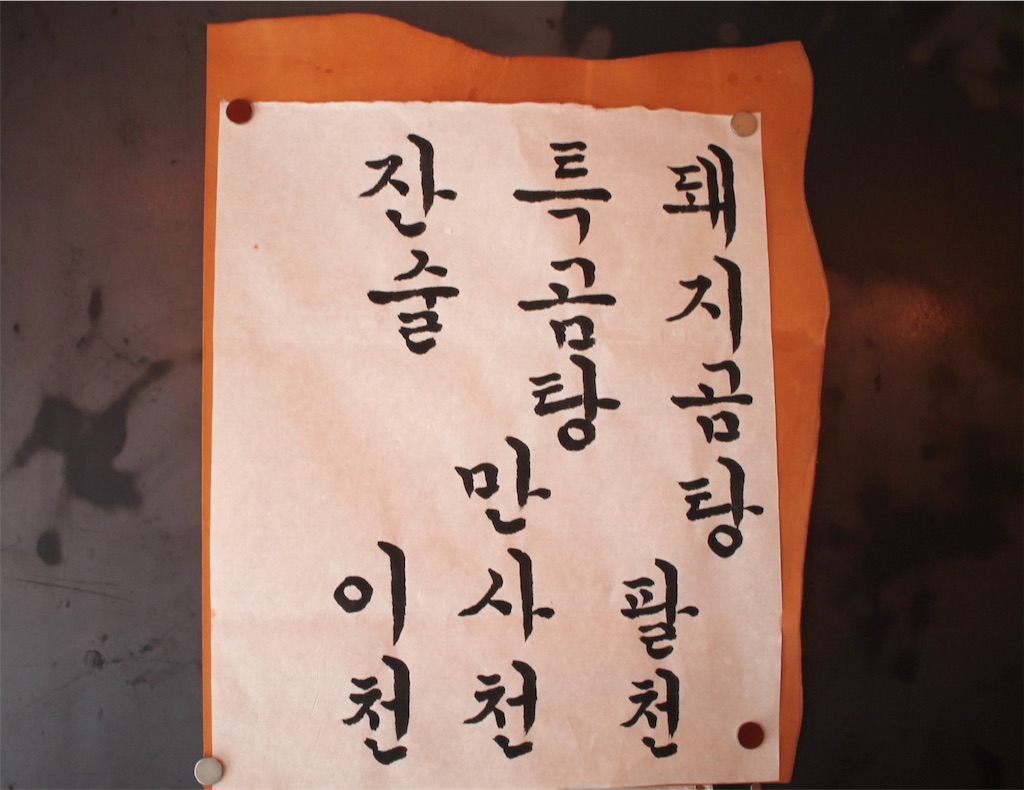 돼지곰탕 팔천
특곰탕 만사천
잔술 이천